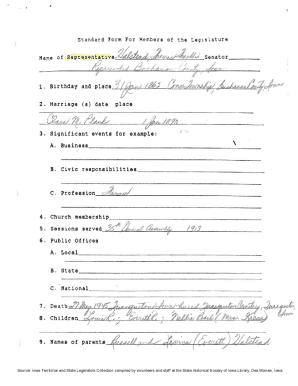 Standard Form For Members of the Legislature
Name of Representative Halstead, Senator
Represented Buchanan County, Iowa
1. Birthday and place 31 Jan 1862 Cono Township, Buchanan County, Iowa
2. Marriage (s) date place
Clara M. Plank 1 Jan 1890
3. Significant events for example:
A. Business
B. Civic responsibilities
C. Profession Farmer
4. Church membership
5. Sessions served 35th General Assembly 1913
6. Public Offices
A. Local
B. State
C. National
7. Death 27 May 1945
8. Children Nellie Pearl (Mrs.
9. Names of parents Russell and (Everett) Halstead
Source: Iowa Territorial and State Legislators Collection compiled by volunteers and staff at the State Historical Society of Iowa Library, Des Moines, Iowa.